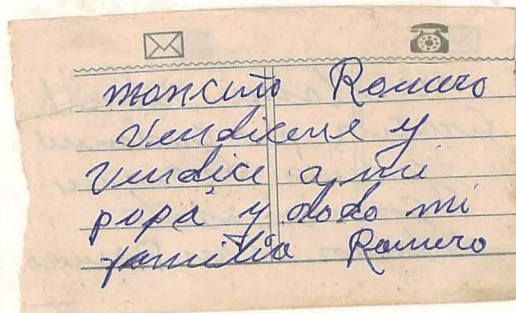 moncito Romero
Vendiceme y
Vendice a mi
papá y dodo mi
familia Romero